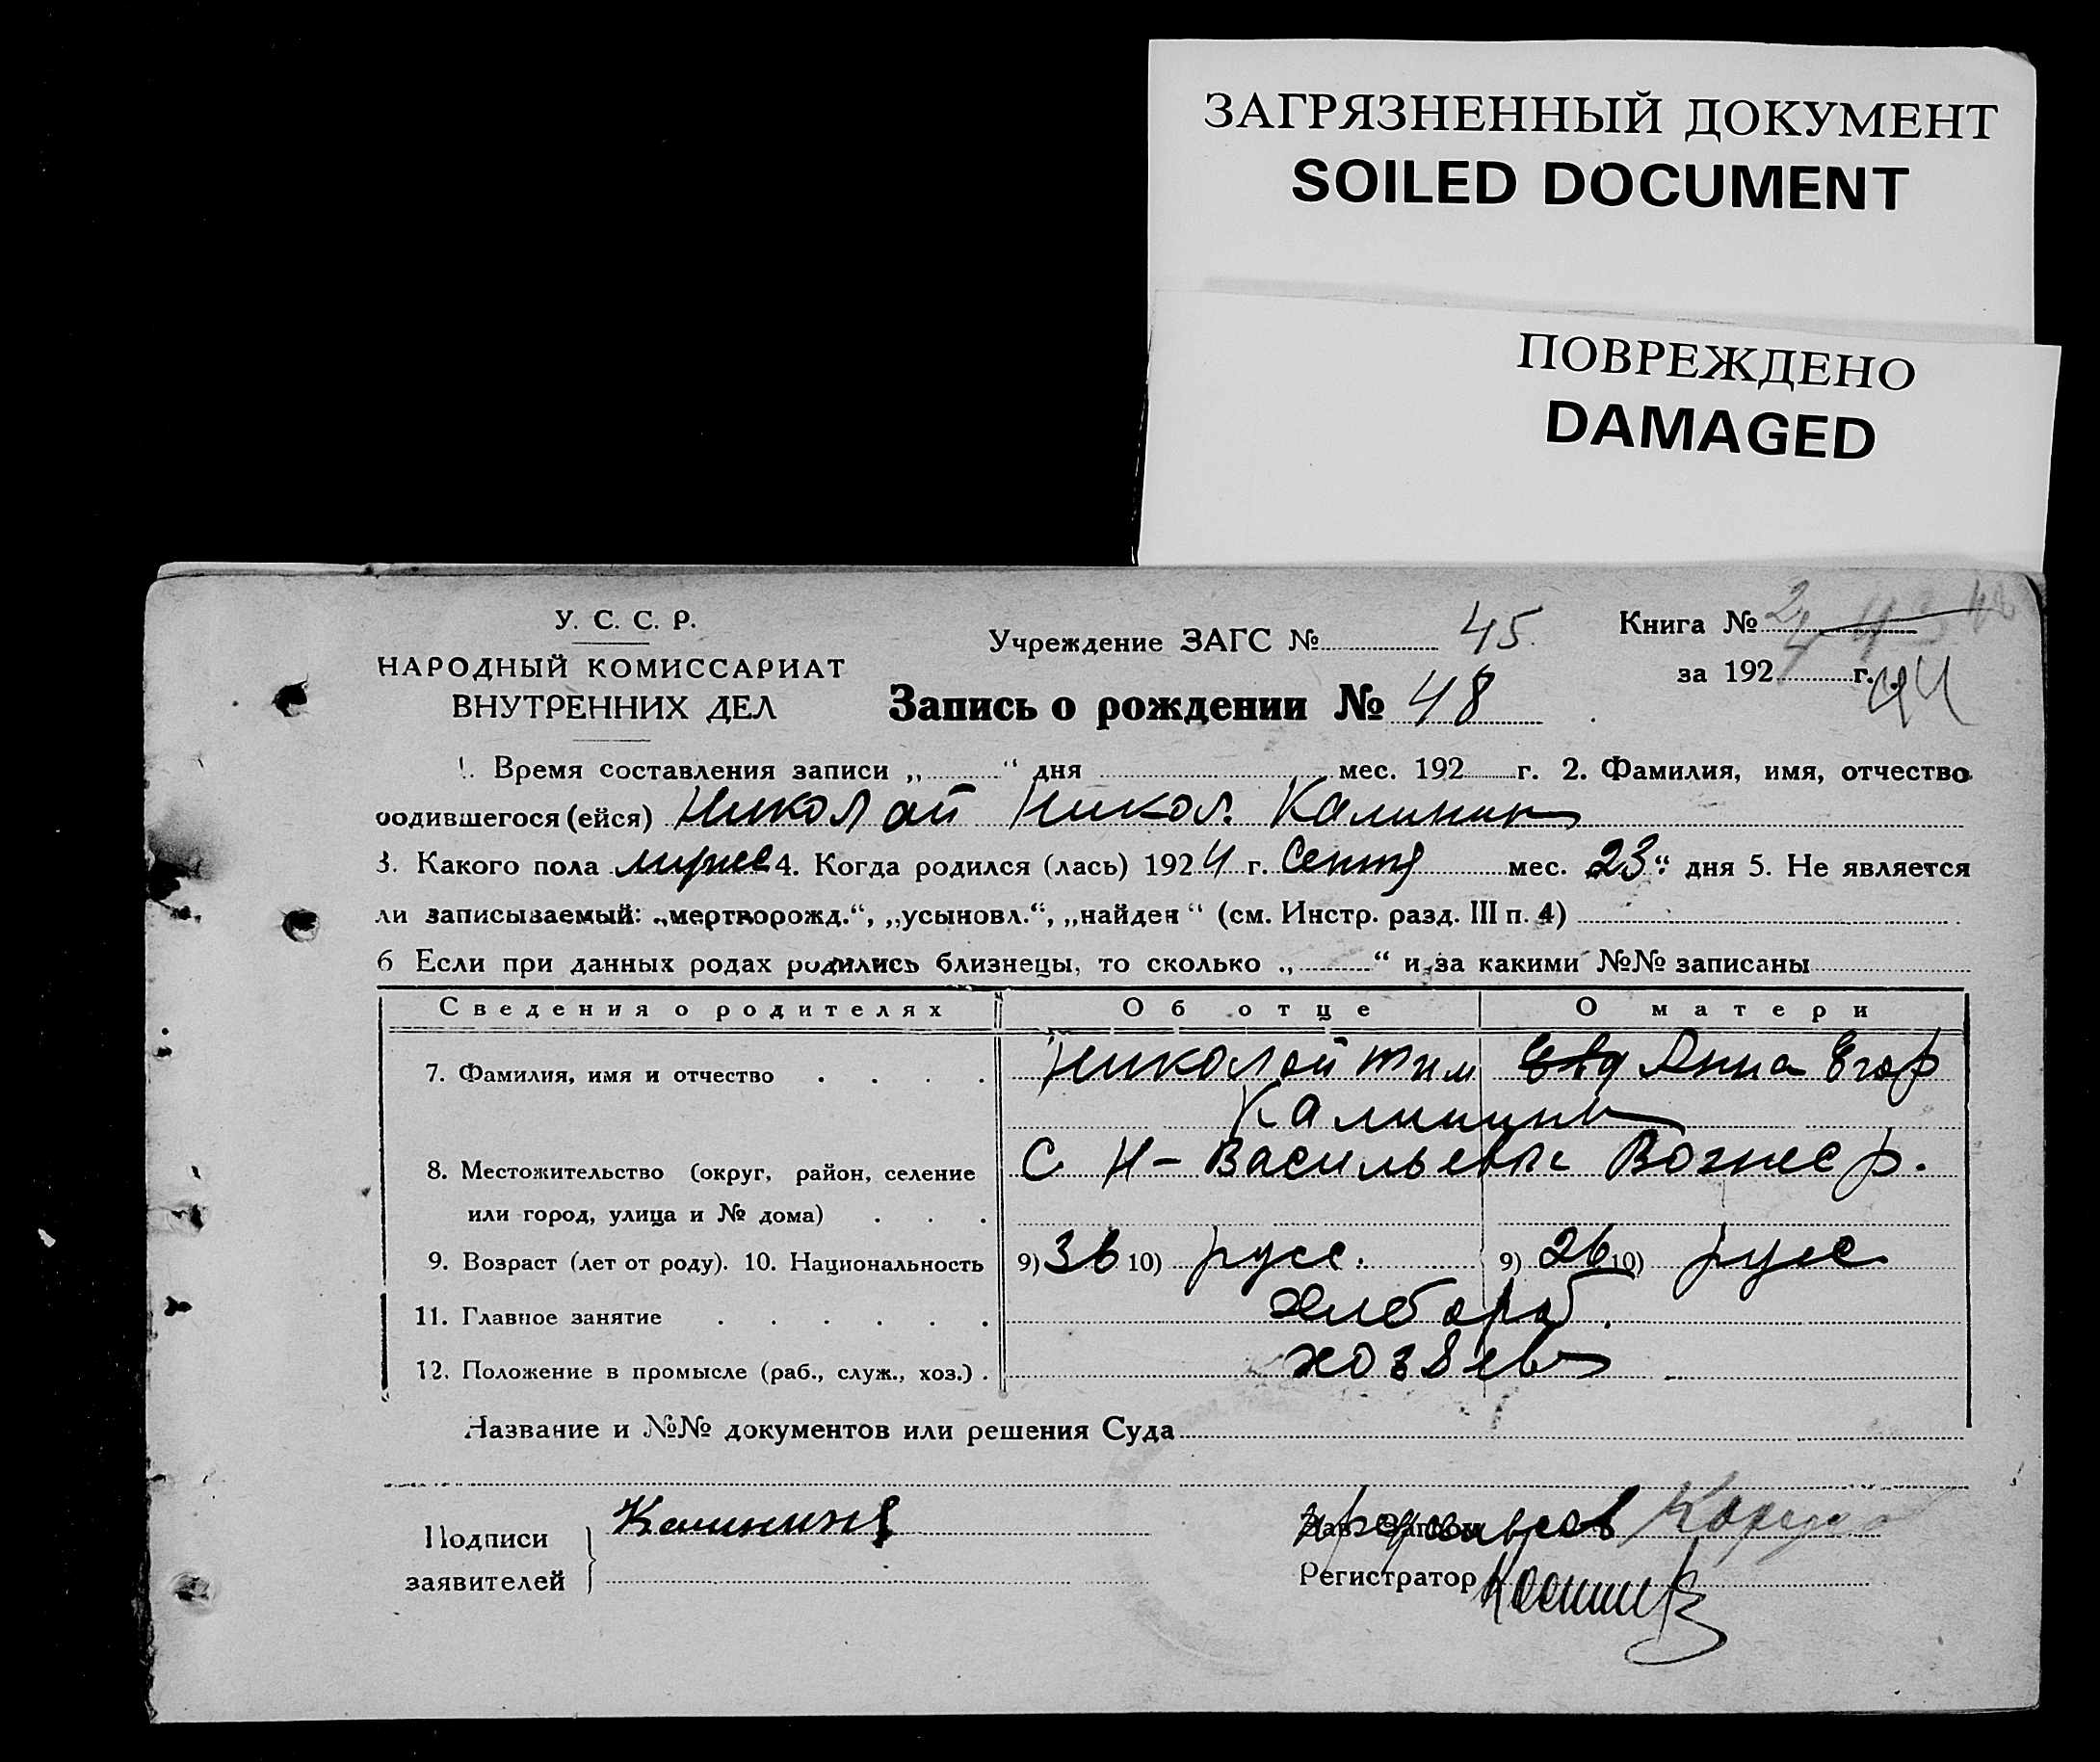 ЗАГРЯЗНЕННЫЙ ДОКУМЕНТ
SOILED DOCUMENT
ПОВРЕЖДЕНО
DAMAGED
У. С. С. Р.
НАРОДНЫЙ КОМИССАРИАТ
ВНУТРЕННИХ ДЕЛ
Учреждение ЗАГС № 45
Запись о рождении № 48
Книга №
за 1924 г.
1. Время составления записи „ “ дня мес. 192 г. 2. Фамилия, имя, отчество
родившегося (ейся) Николай Никол. Калинин
3. Какого пола мужс 4. Когда родился (лась) 1924 г. Сентя мес. 23 “ дня 5. Не является
ли записываемый: „мертворожд.“, „усыновл.“, „найден“ (см. Инстр. разд. III п. 4)
6 Если при данных родах родились близнецы, то сколько „ “ и за какими №№ записаны
Сведения о родителях Об отце О матери
7. Фамилия, имя и отчество . . . . Николай Тим Анна Егор
Калинины
8. Местожительство (округ, район, селение С Н-Васильевке Вознес р.
или город, улица и № дома) . . .
9. Возраст (лет от роду). 10. Национальность 9) 36 10) русс. 9) 26 10) русс
11. Главное занятие . . . . . . хлебороб.
12. Положение в промысле (раб., служ., хоз.) . хозяев
Название и №№ документов или решения Суда
Подписи
заявителей
Калинин
Регистратор